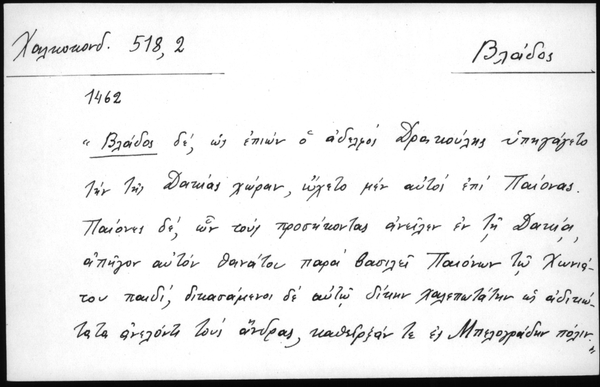 Χαλκοκονδ. 518,2
Βλάδος
1462
" Βλάδος δέ, ὡς ἐπιών ὁ ἀδελφός Δρακούλης ὑπηγάγετο
τήν τῆς Δακίας χώραν, ᾤχετο μέν αὐτός ἐπί Παίονας.
Παίονες δέ, ὧν τούς προσήκοντας ἀνεῖλεν ἐν τῇ Δακίᾳ,
ἀπῆγον αὐτόν θανάτου παρά βασιλεῖ Παιόνων τῷ Χωνιά-
του παιδί, δικασάμενοι δέ αὐτῷ δίκην χαλεπωτάτην ὡς ἀδικώ-
τατα ἀνελόντι τούς ἄνδρας, καθεῖρξάν τε ἐς Μπελογράδην πόλιν. "